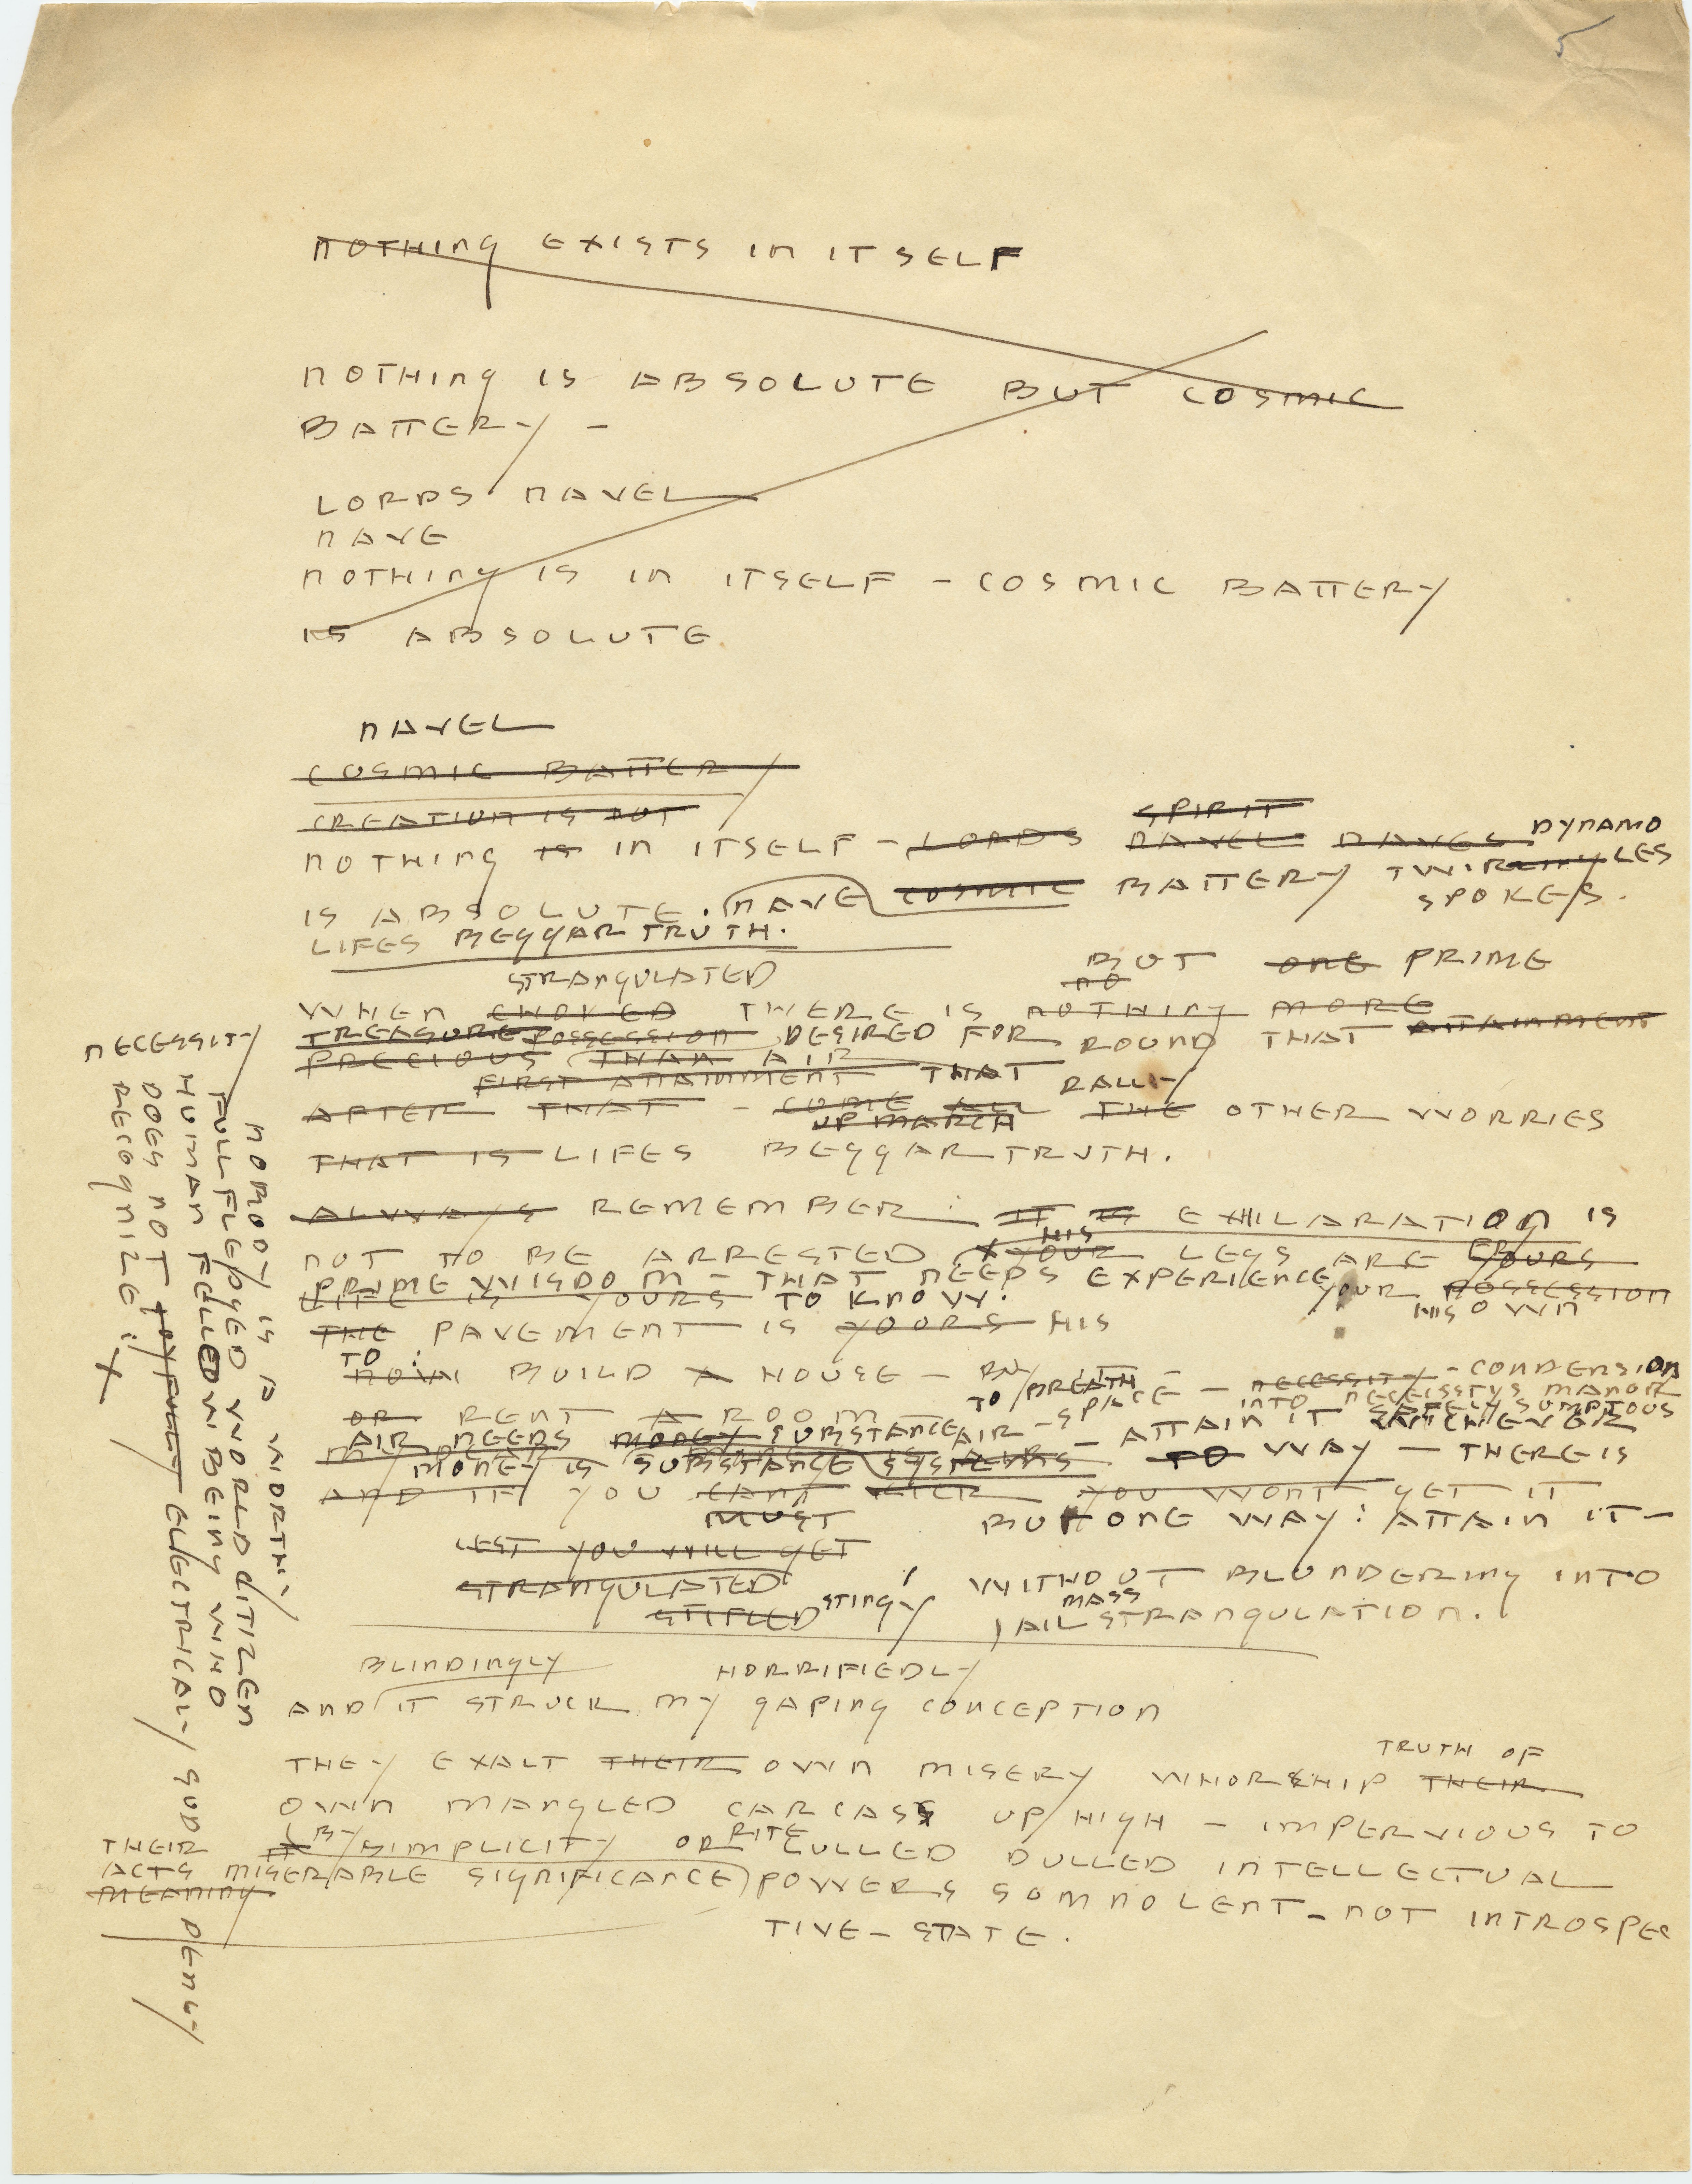 5
NOTHING EXISTS IN ITSELF
NOTHING IS ABSOLUTE BUT COSMIC
BATTERY –
LORDS NAVEL
NAVE
NOTHING IS IN ITSELF – COSMIC BATTERY
IS ABSOLUTE
NAVEL
COSMIC BATTERY
CREATION IS NOT
SPIRIT
DYNAMO
NOTHING IS IN ITSELF – LORDS NAVEL NAVES
IS ABSOLUTE. NAVE COSMIC BATTERY TWIRLING LES
SPOKES.
LIFES BEGGARTRUTH.
STRANGULATED
BUT ONE PRIME
NO
WHEN CHOKED THERE IS NOTHING MORE
TREASURE POSSESSION DESIRED FOR ROUND THAT ATTAINMENT
PRECIOUS THAN AIR
FIRST ATTAINMENT THAT RALLY
AFTER THAT – COME ALL THE OTHER WORRIES
UP MARCH
THAT IS LIFES BEGGARTRUTH.
ALWAYS REMEMBER: IT IS EXHILARATION IS
HIS
NOT TO BE ARRESTED YOUR LEGS ARE YOURS
PRIME WISDOM – THAT NEEDS EXPERIENCE
LIFE IS YOURS TO KNOW. YOUR POSSESSION
HIS OWN
THE PAVEMENT IS YOURS HIS
TO:
NOW BUILD A HOUSE – BUY BREATH – NECESSITY – CONDENSION
TO SPACE – INTO NECESSITYS MANOR
OR RENT A ROOM SAFELY SUMPTOUS
AIR NEEDS MONEY SUBSTANCE AIR – ATTAIN IT WHICHEVER
MONEY IS SUBSTANCE SYSTEMS TO WAY – THERE IS
AND IF YOU CANT KICK YOU WONT GET IT
MUST BUT ONE WAY: ATTAIN IT –
LEST YOU WILL GET
STRANGULATED WITHOUT BLUNDERING INTO
STIFLED STINGY MASS
JAIL STRANGULATION.
BLINDINGLY HORRIFIEDLY
AND IT STRUCK MY GAPING CONCEPTION
TRUTH OF
THEY EXALT THEIR OWN MISERY WHORSHIP THEIR
OWN MANGLED CARCASS UP HIGH – IMPERVIOUS TO
BY RITE
THEIR IT SIMPLICITY OR LULLED DULLED INTELLECTUAL
ACTS MISERABLE SIGNIFICANCE) POWERS SOMNOLENT – NOT INTROSPEC
MEANING
TIVE – STATE.
NOBODY IS A WORTHY
FULLFLEDGED WORLD CITIZEN
HUMAN FELLOWBEING WHO
DOES NOT JOYFULLY ELECTRICALLY SUDDENLY
RECOGNIZE: X
NECESSITY